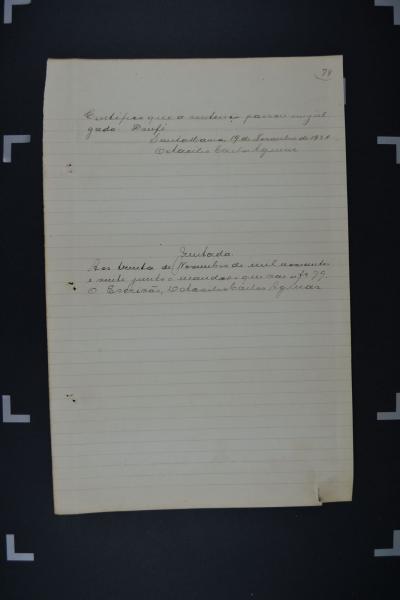 78
Certifico que a sentença passou em jul
gado. Doufé
Santa Maria, 19 de Novembro de 1920
Octacilio Carlos Aguiar
Juntada
Aos trinta de Novembro de mil novecentos
e vinte junto o mandado que vae a fs 79.
O Escrivão, Octacilio Carlos Aguiar